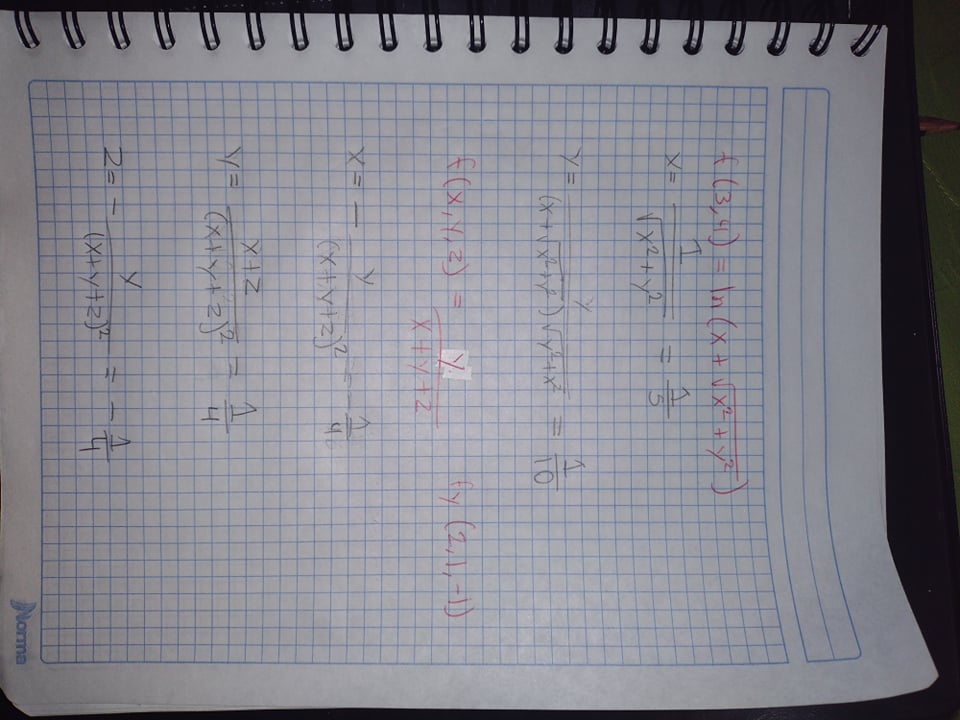 f(3,4) = ln(x + √(x² + y²))
x = 1/√(x² + y²) = 1/5
y = y/((x + √(x² + y²))√(y² + x²)) = 1/10
f(x,y,z) = y/(x + y + z) fy (2,1,-1)
x = - y/(x + y + z)² = - 1/4
y = x + z/(x + y + z)² = 1/4
z = - y/(x + y + z)² = - 1/4
Norma